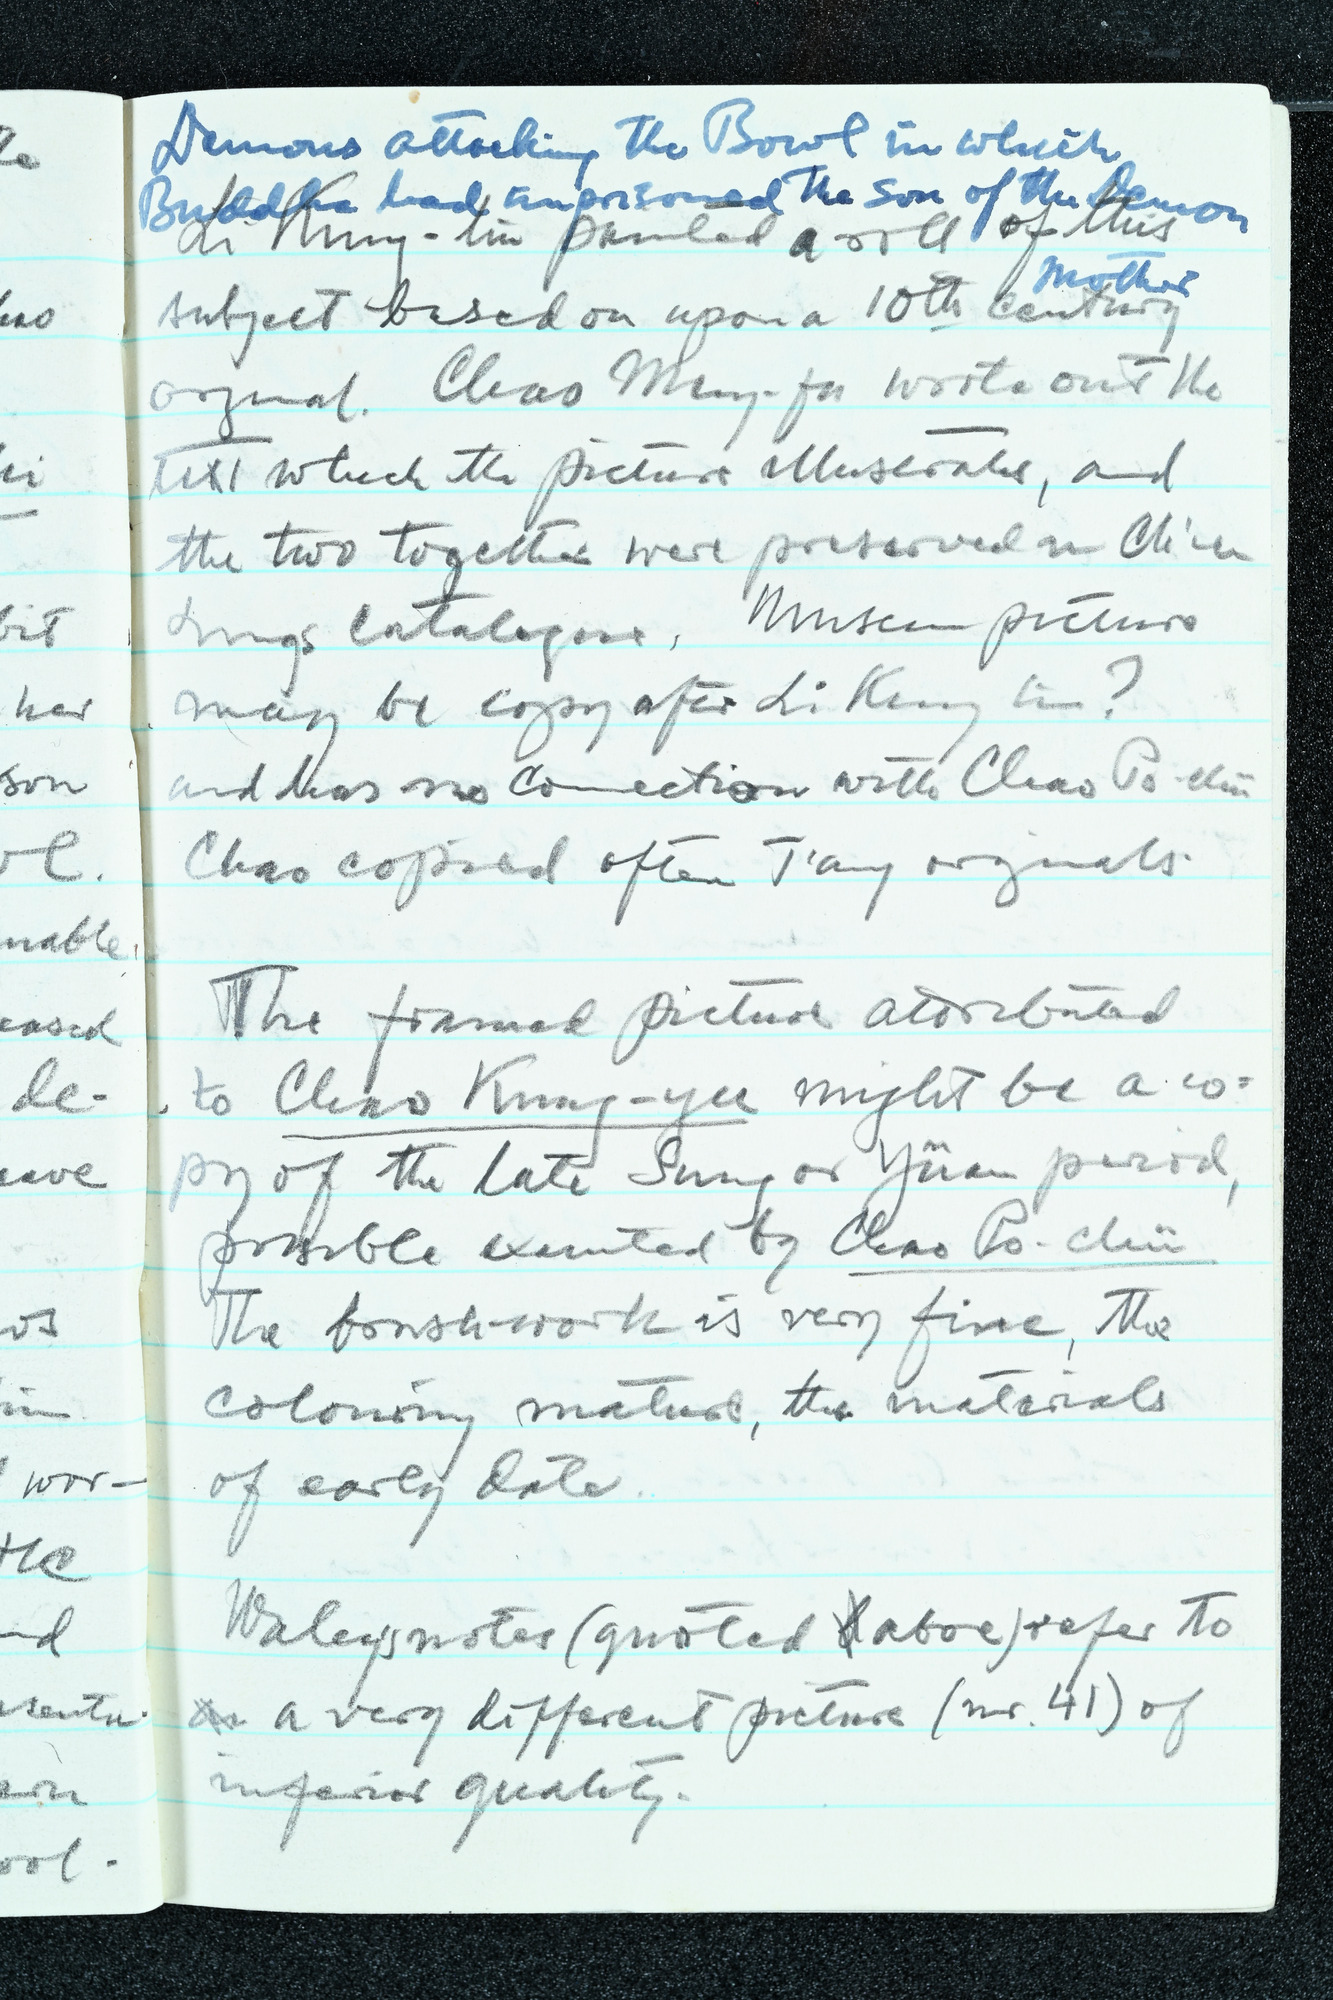 Demons attacking the Bowl in which
Buddha had imprisoned the son of the Demon
Mother
Li Kung-lin painted a roll of this
subject based on upon a 10th century
orginal. Chao Meng-fu wrote out the
text which the picture illustrates, and
the two together were preserved in Ch'ien
Lungs catalogue. Museum picture
may be copy after Li Kung lin?
and has no connection with Chao Po-chü
Chao copied often T'ang originals.
The framed picture attributed
to Chao Kung-yu might be a co=
py of the late Sung or Yüan period,
possible executed by Chao Po-chü
The brush-work is very fine, the
colouring mature, the materials
of early date.
Waleys notes (quoted above) refer to
a very different picture (nr. 41) of
inferior quality.
has
bit
her
son
nable
eased
de-
wor-
the